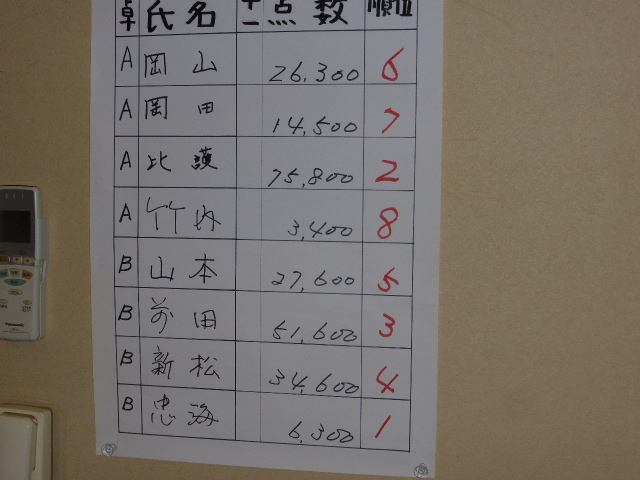 卓 氏名 十一 点数 順位
A 岡山 26,300 6
A 岡田 14,500 7
A 比護 75,800 2
A 竹内 3,400 8
B 山本 27,600 5
B 前田 51,600 3
B 新松 34,600 4
B 忠海 6,300 1
Panasonic